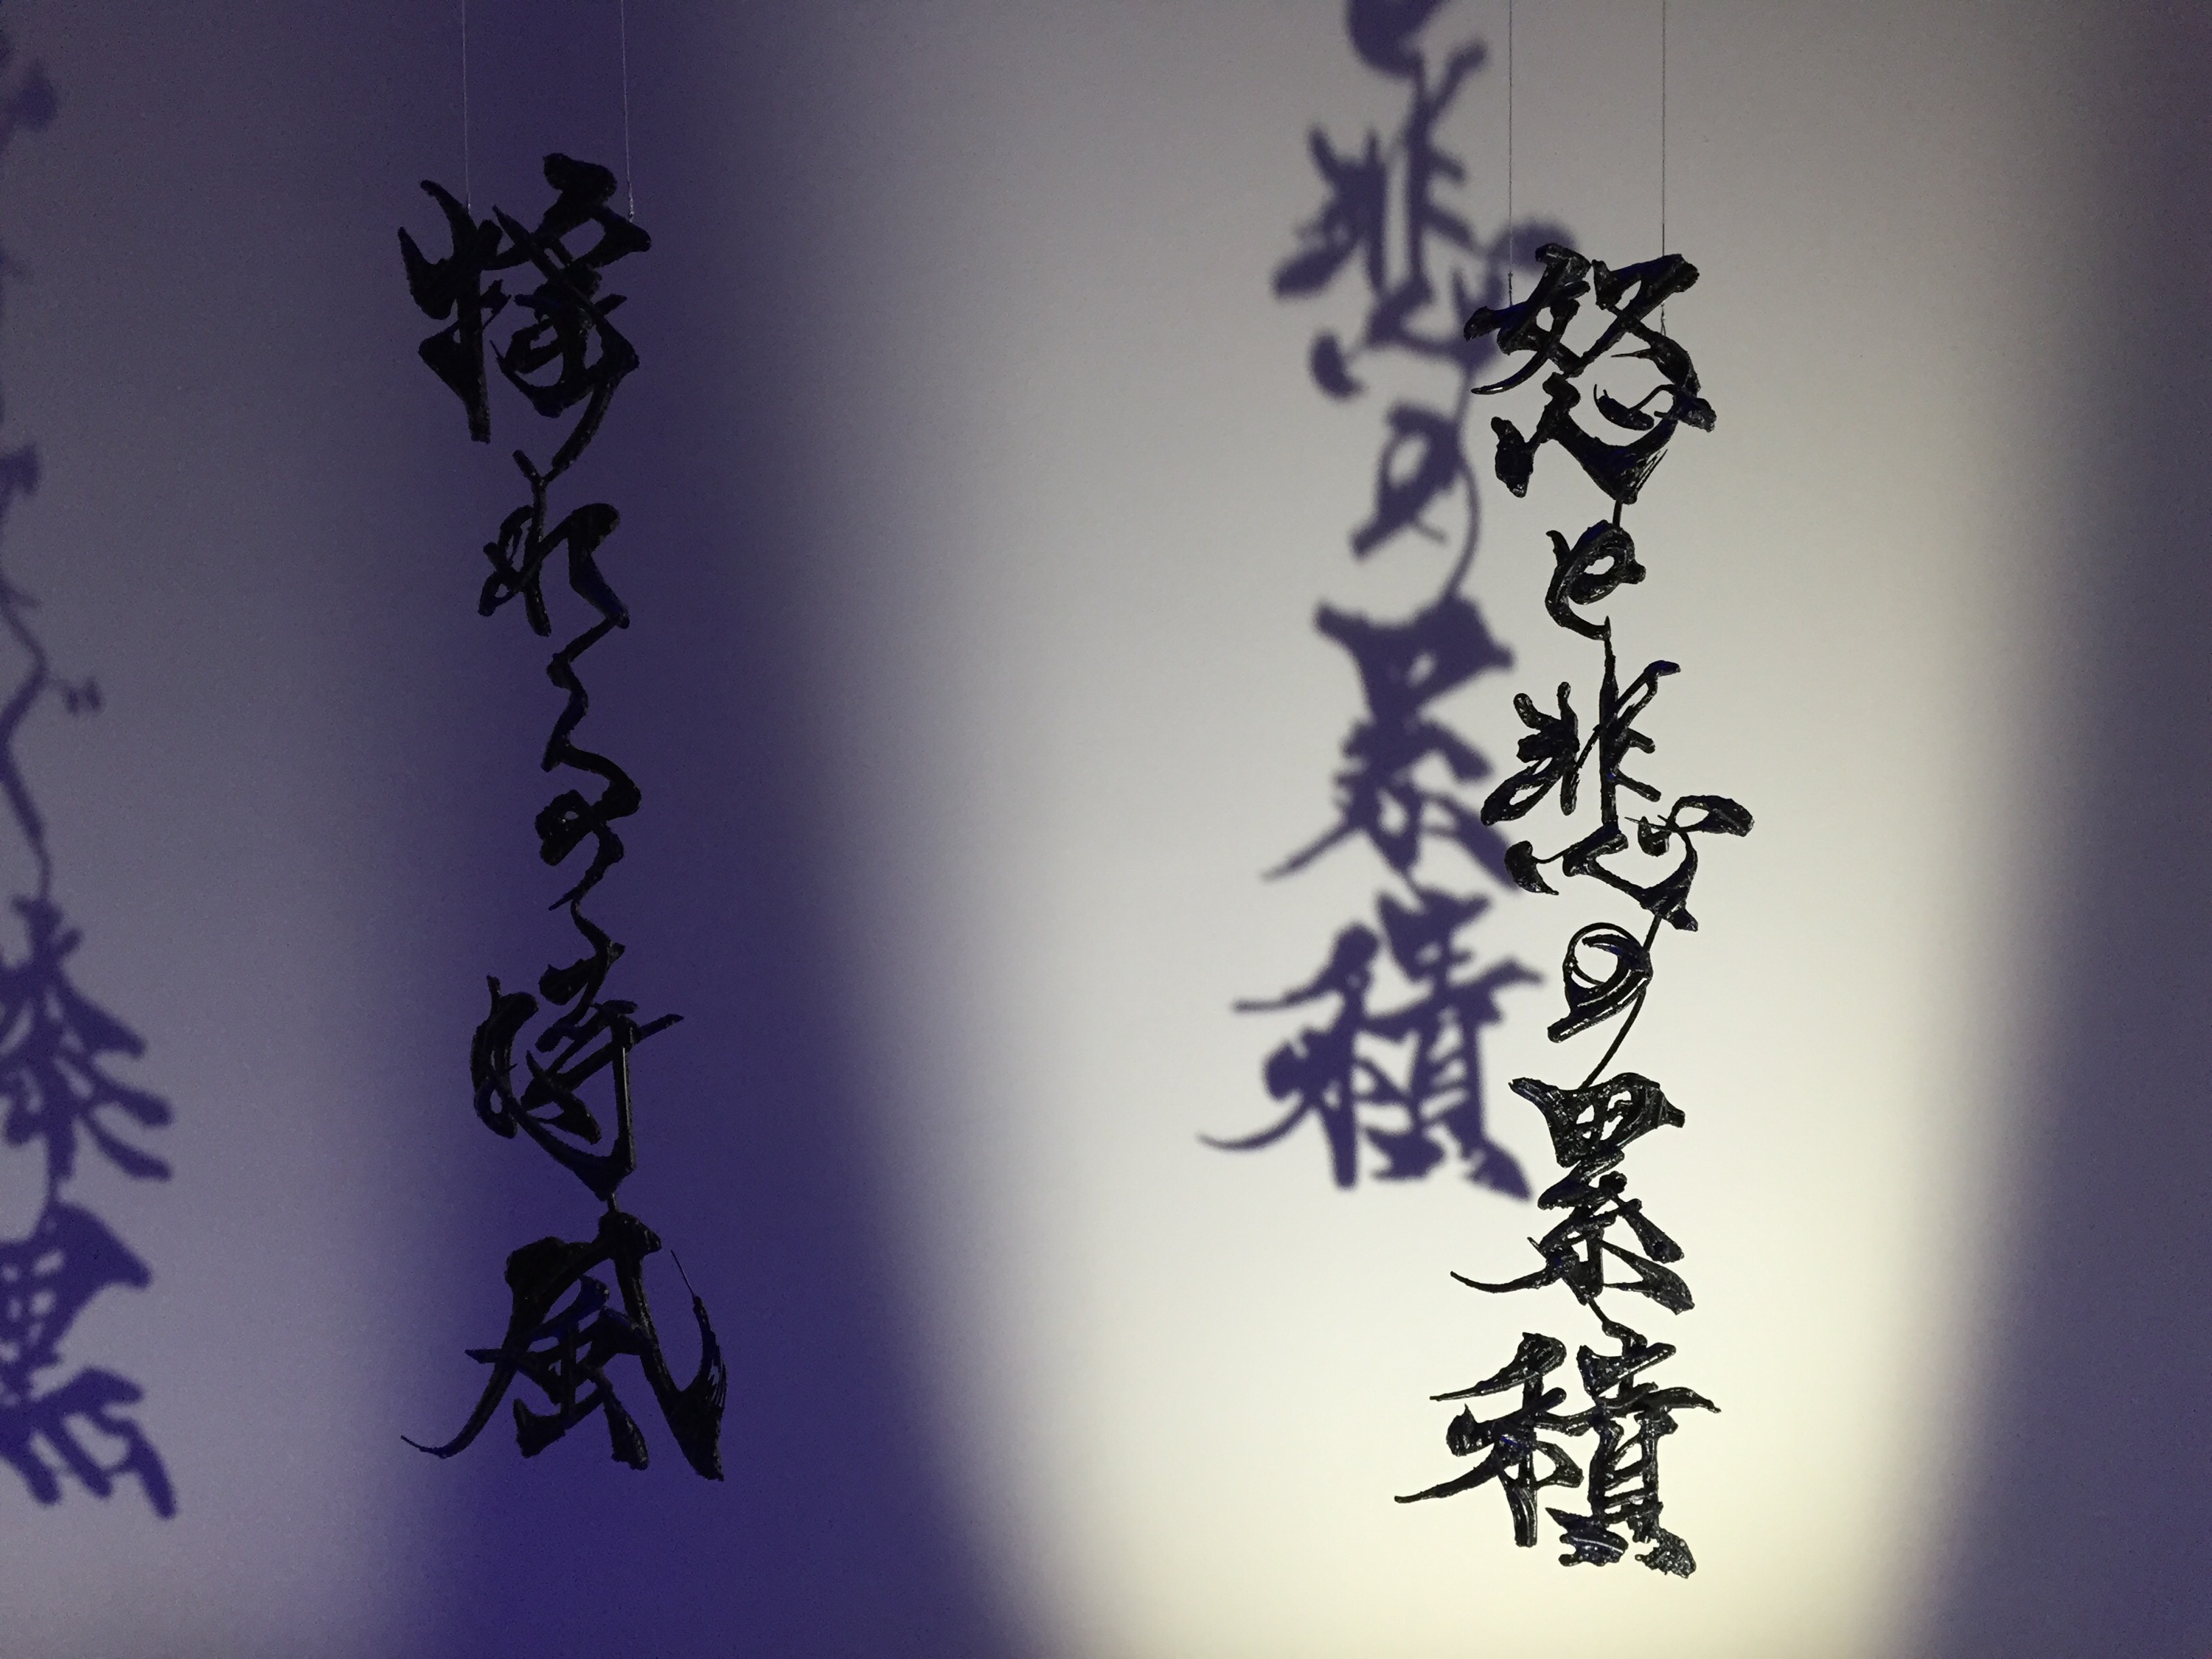 怒と悲の累積
れる時風